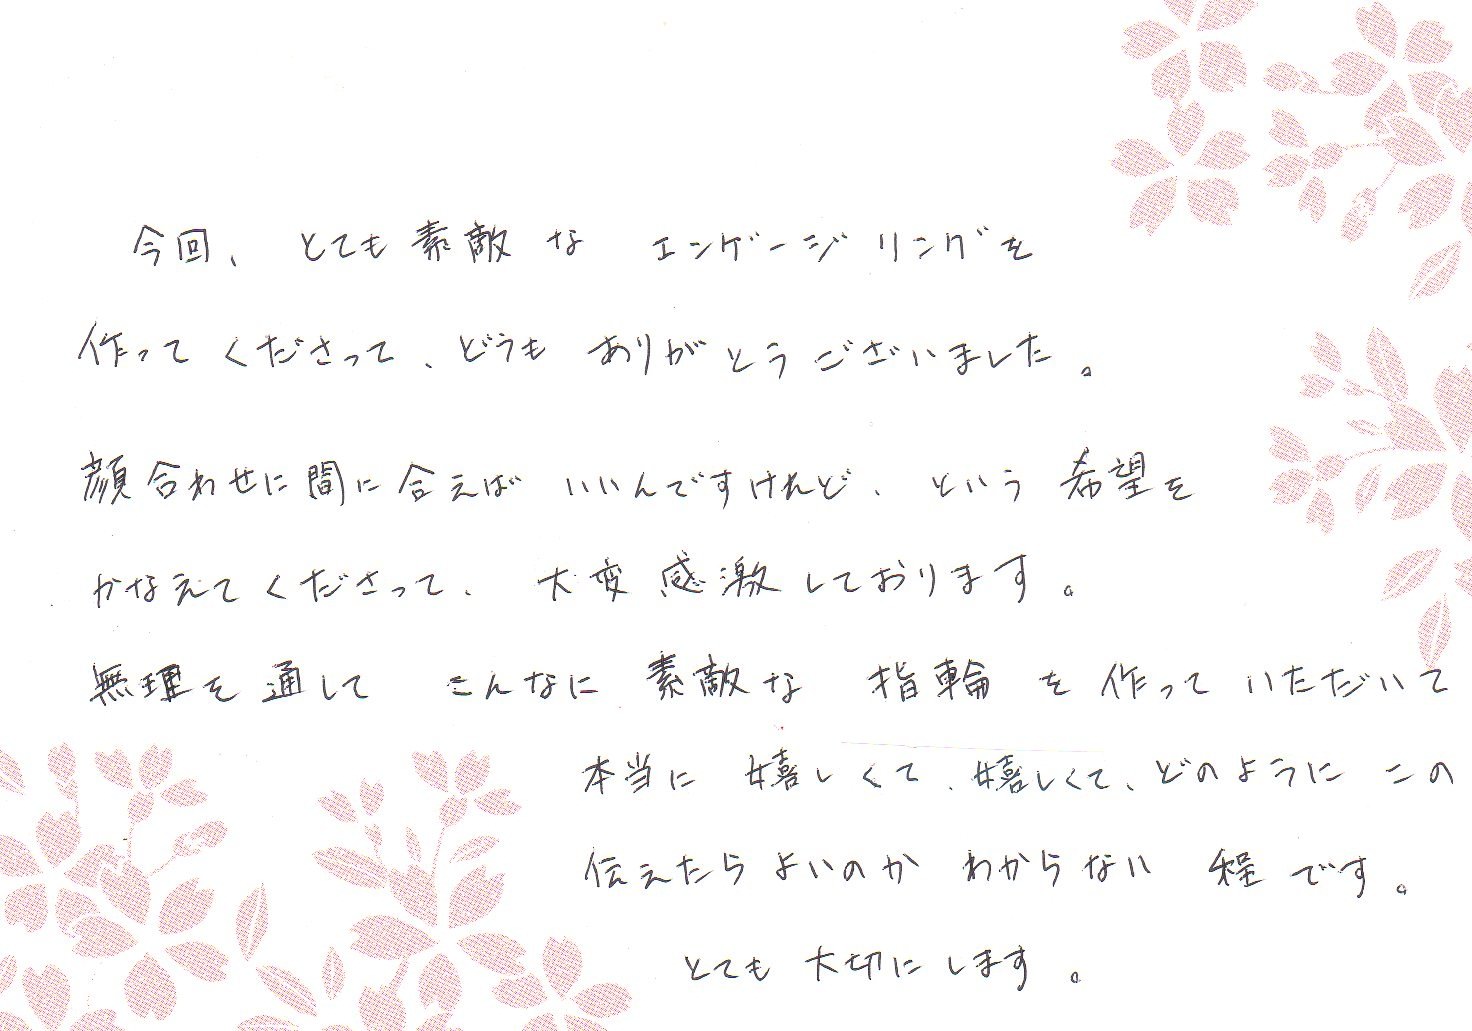 今回、とても素敵なエンゲージリングを
作ってくださって、どうもありがとうございました。
顔合わせに間に合えばいいんですけれど、という希望を
かなえてくださって、大変感激しております。
無理を通してこんなに素敵な指輪を作っていただいて
本当に嬉しくて、嬉しくて、どのようにこの
伝えたらよいのかわからない程です。
とても大切にします。